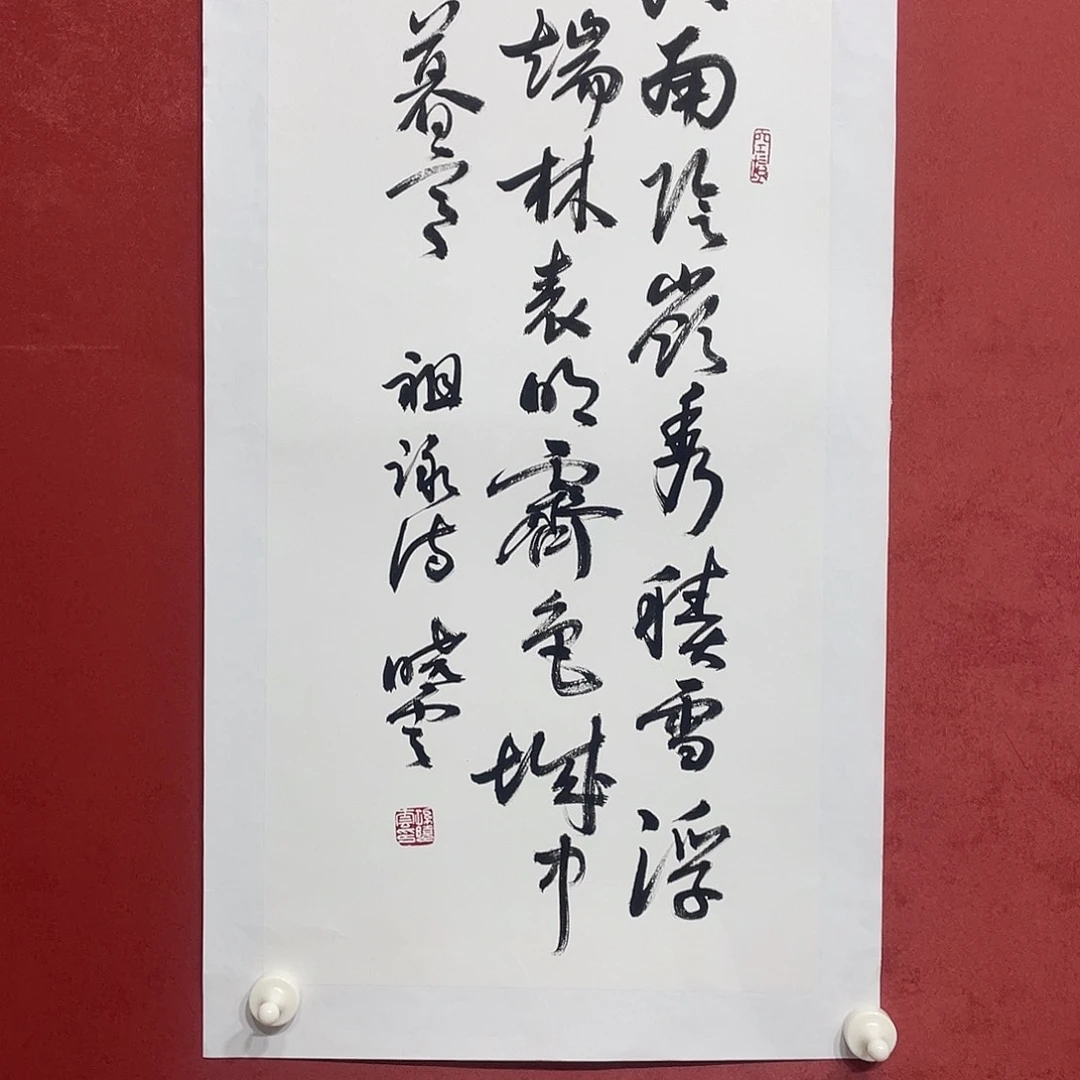 南陰嶺秀積雪浮
端林表明霽色城中
暮寒 祖詠詩 曉雲
孫曉雲印